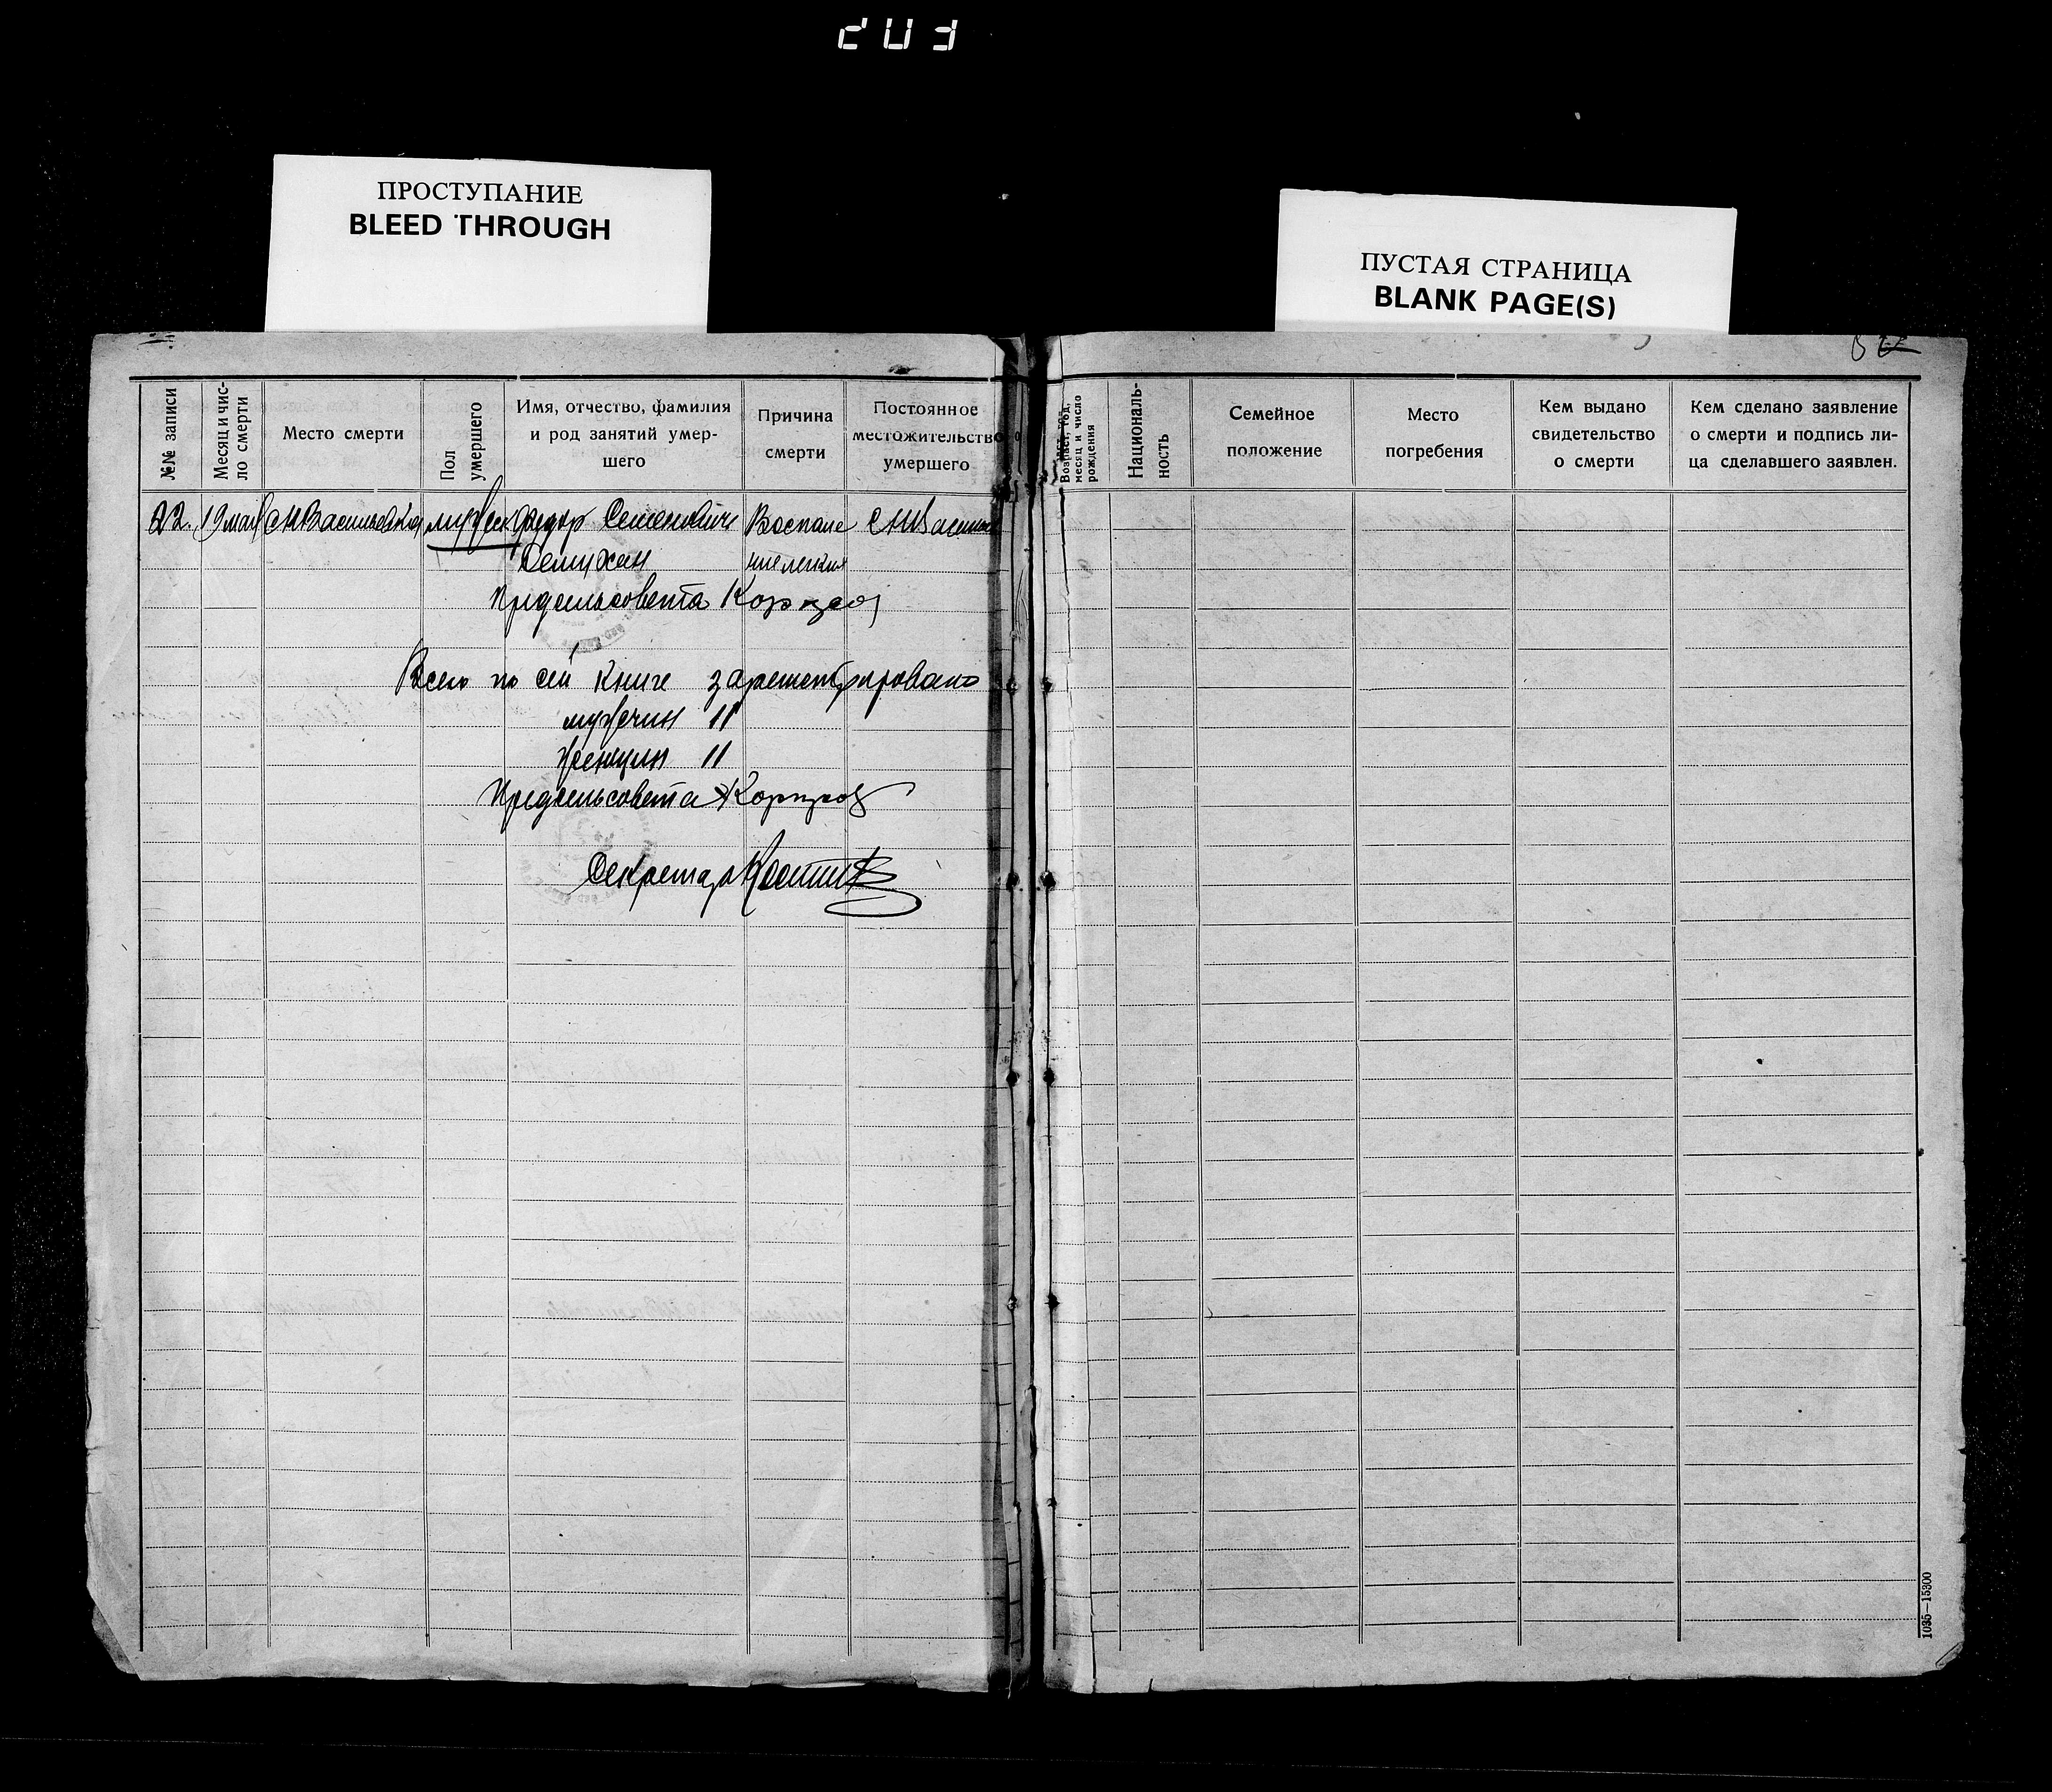 203
ПРОСТУПАНИЕ
BLEED THROUGH
ПУСТАЯ СТРАНИЦА
BLANK PAGE(S)
№№ записи
Месяц и чис-
ло смерти
Место смерти
Пол
умершего
Имя, отчество, фамилия
и род занятий умер-
шего
Причина
смерти
Постоянное
местожительство
умершего
Возраст, год,
месяц и число
рождения
Националь-
ность
Семейное
положение
Место
погребения
Кем выдано
свидетельство
о смерти
Кем сделано заявление
о смерти и подпись ли-
ца сделавшего заявлен.
22. 19 мая муж Федор Семенович Воспале
ние легких
Предсельсовета
Всего по сей книге зарегистрировано
мужчин 11
женщин 11
Предсельсовета
Секретарь
1035—15300